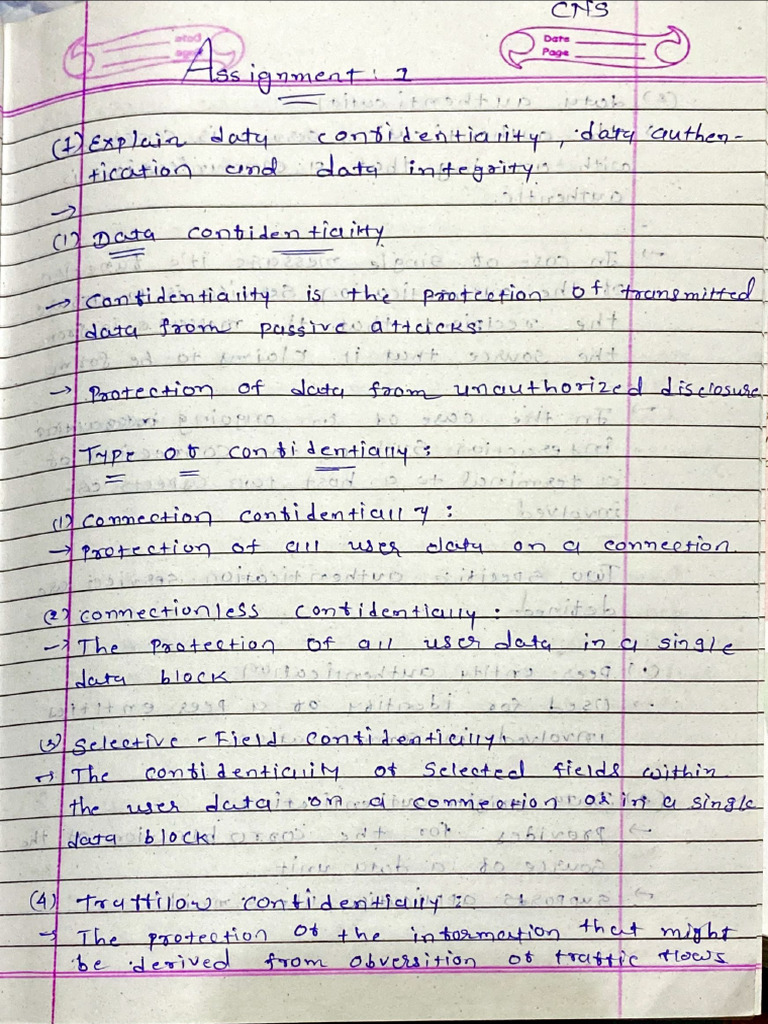 CNS
Date
Page
Assignment: 1
(1) Explain data confidentiality, data authen-
tication and data integrity
→
(1) Data confidentiality
→ Confidentiality is the protection of transmitted
data from passive attacks.
→ Protection of data from unauthorized disclosure
Type of confidentially:
(1) Connection confidentially:
→ Protection of all user data on a connection
(2) Connectionless confidentially:
→ The protection of all user data in a single
data block
(3) Selective - Field confidentiality
→ The confidentiality of selected fields within
the user data on a connection or in a single
data block
(4) trafflow confidentiality:
→ The protection of the information that might
be derived from obversition of traffic flows